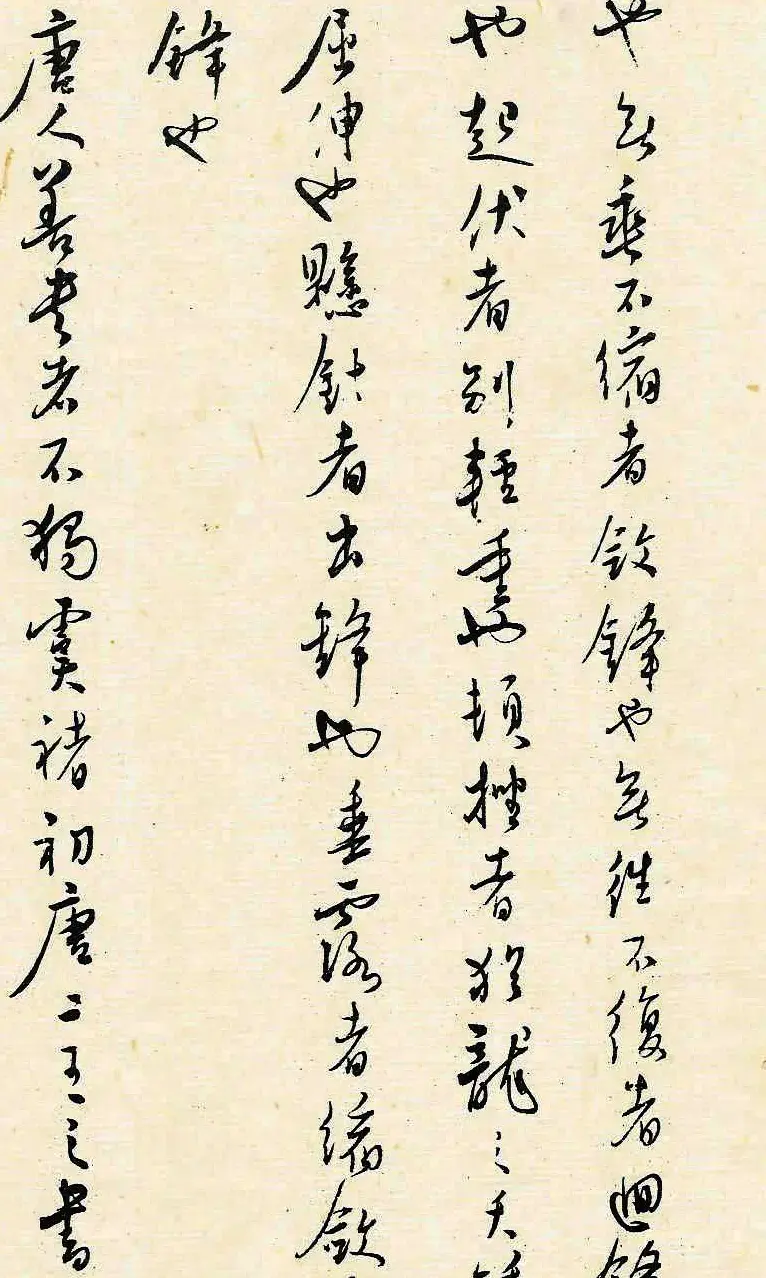 也無垂不縮者斂鋒也無往不復者迴鋒
也起伏者別輕重也頓挫者猶龍之夭
屈伸也懸針者出鋒也垂露者縮斂
鋒也
唐人善書者不獨虞褚初唐二王之書